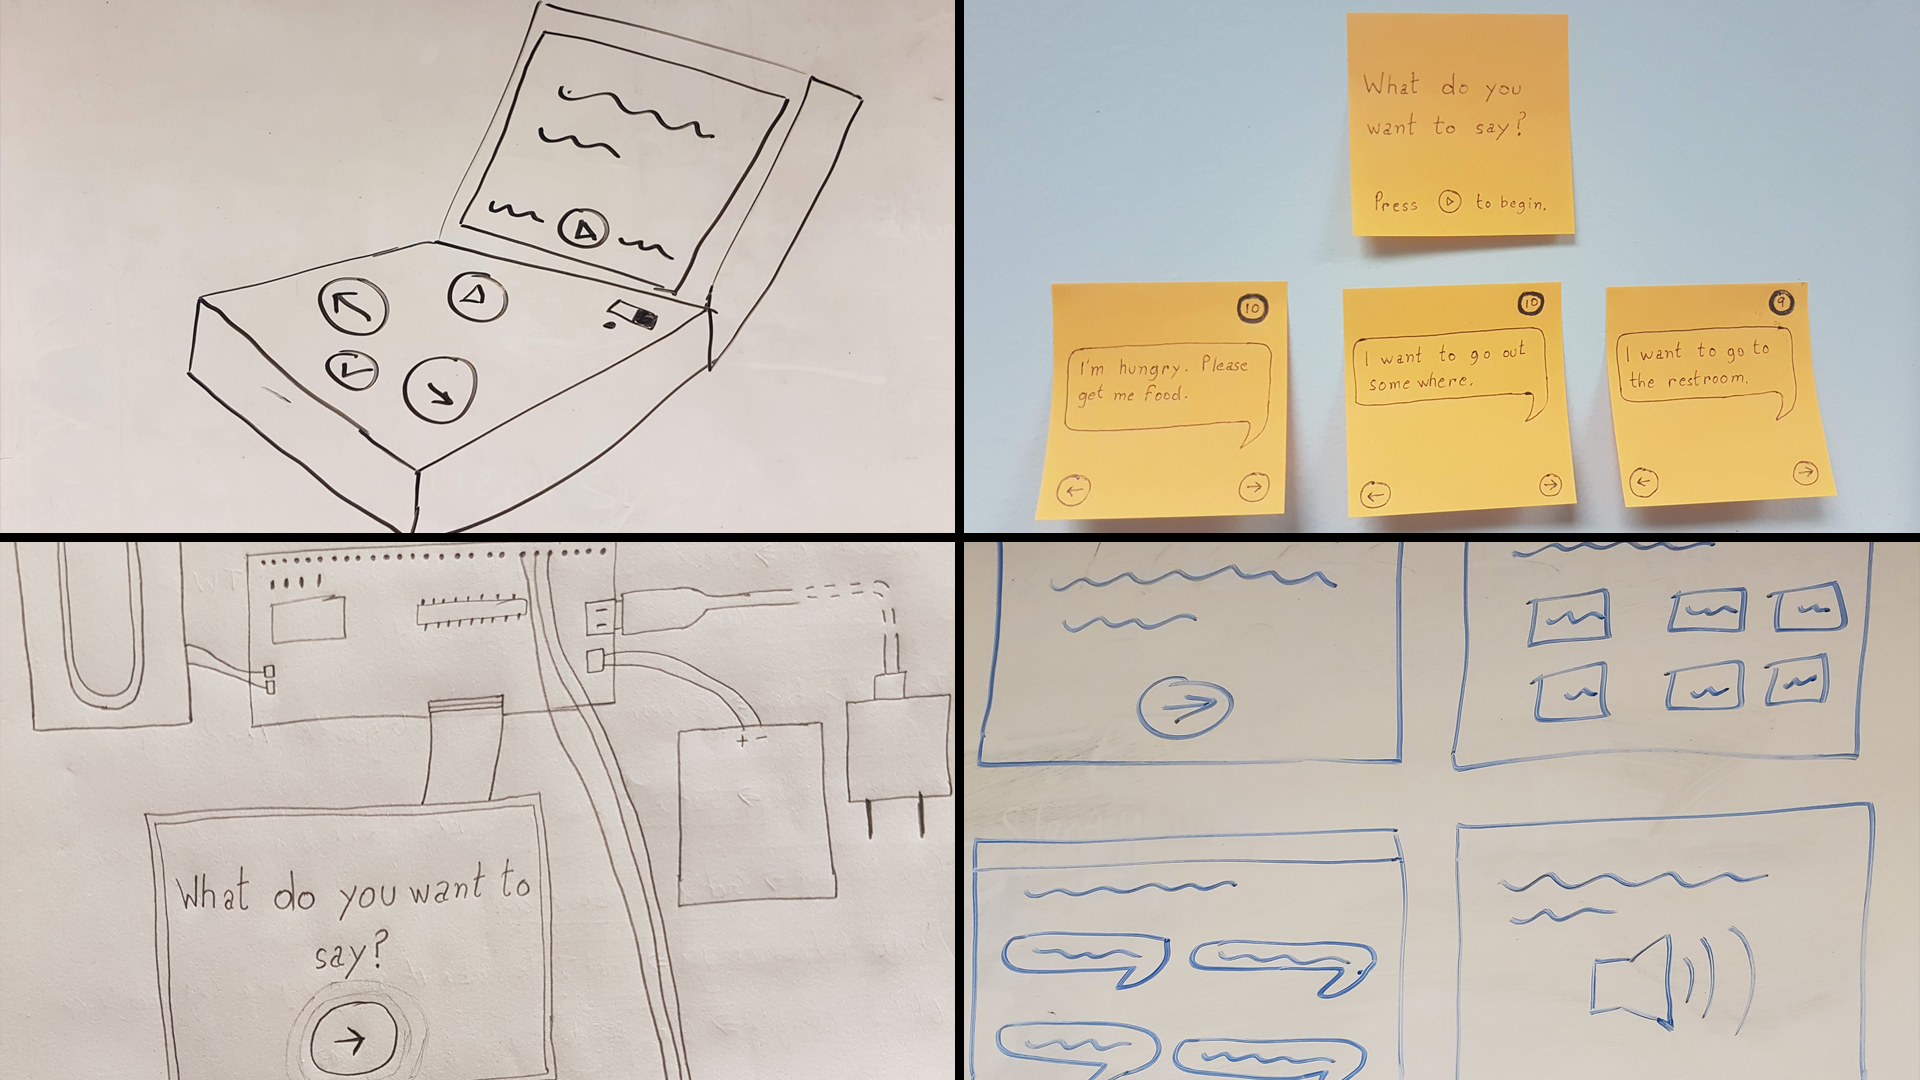 What do you
want to say?
Press to begin.
10
I'm hungry. Please
get me food.
10
I want to go out
some where.
9
I want to go to
the restroom.
+ -
What do you want to
say?